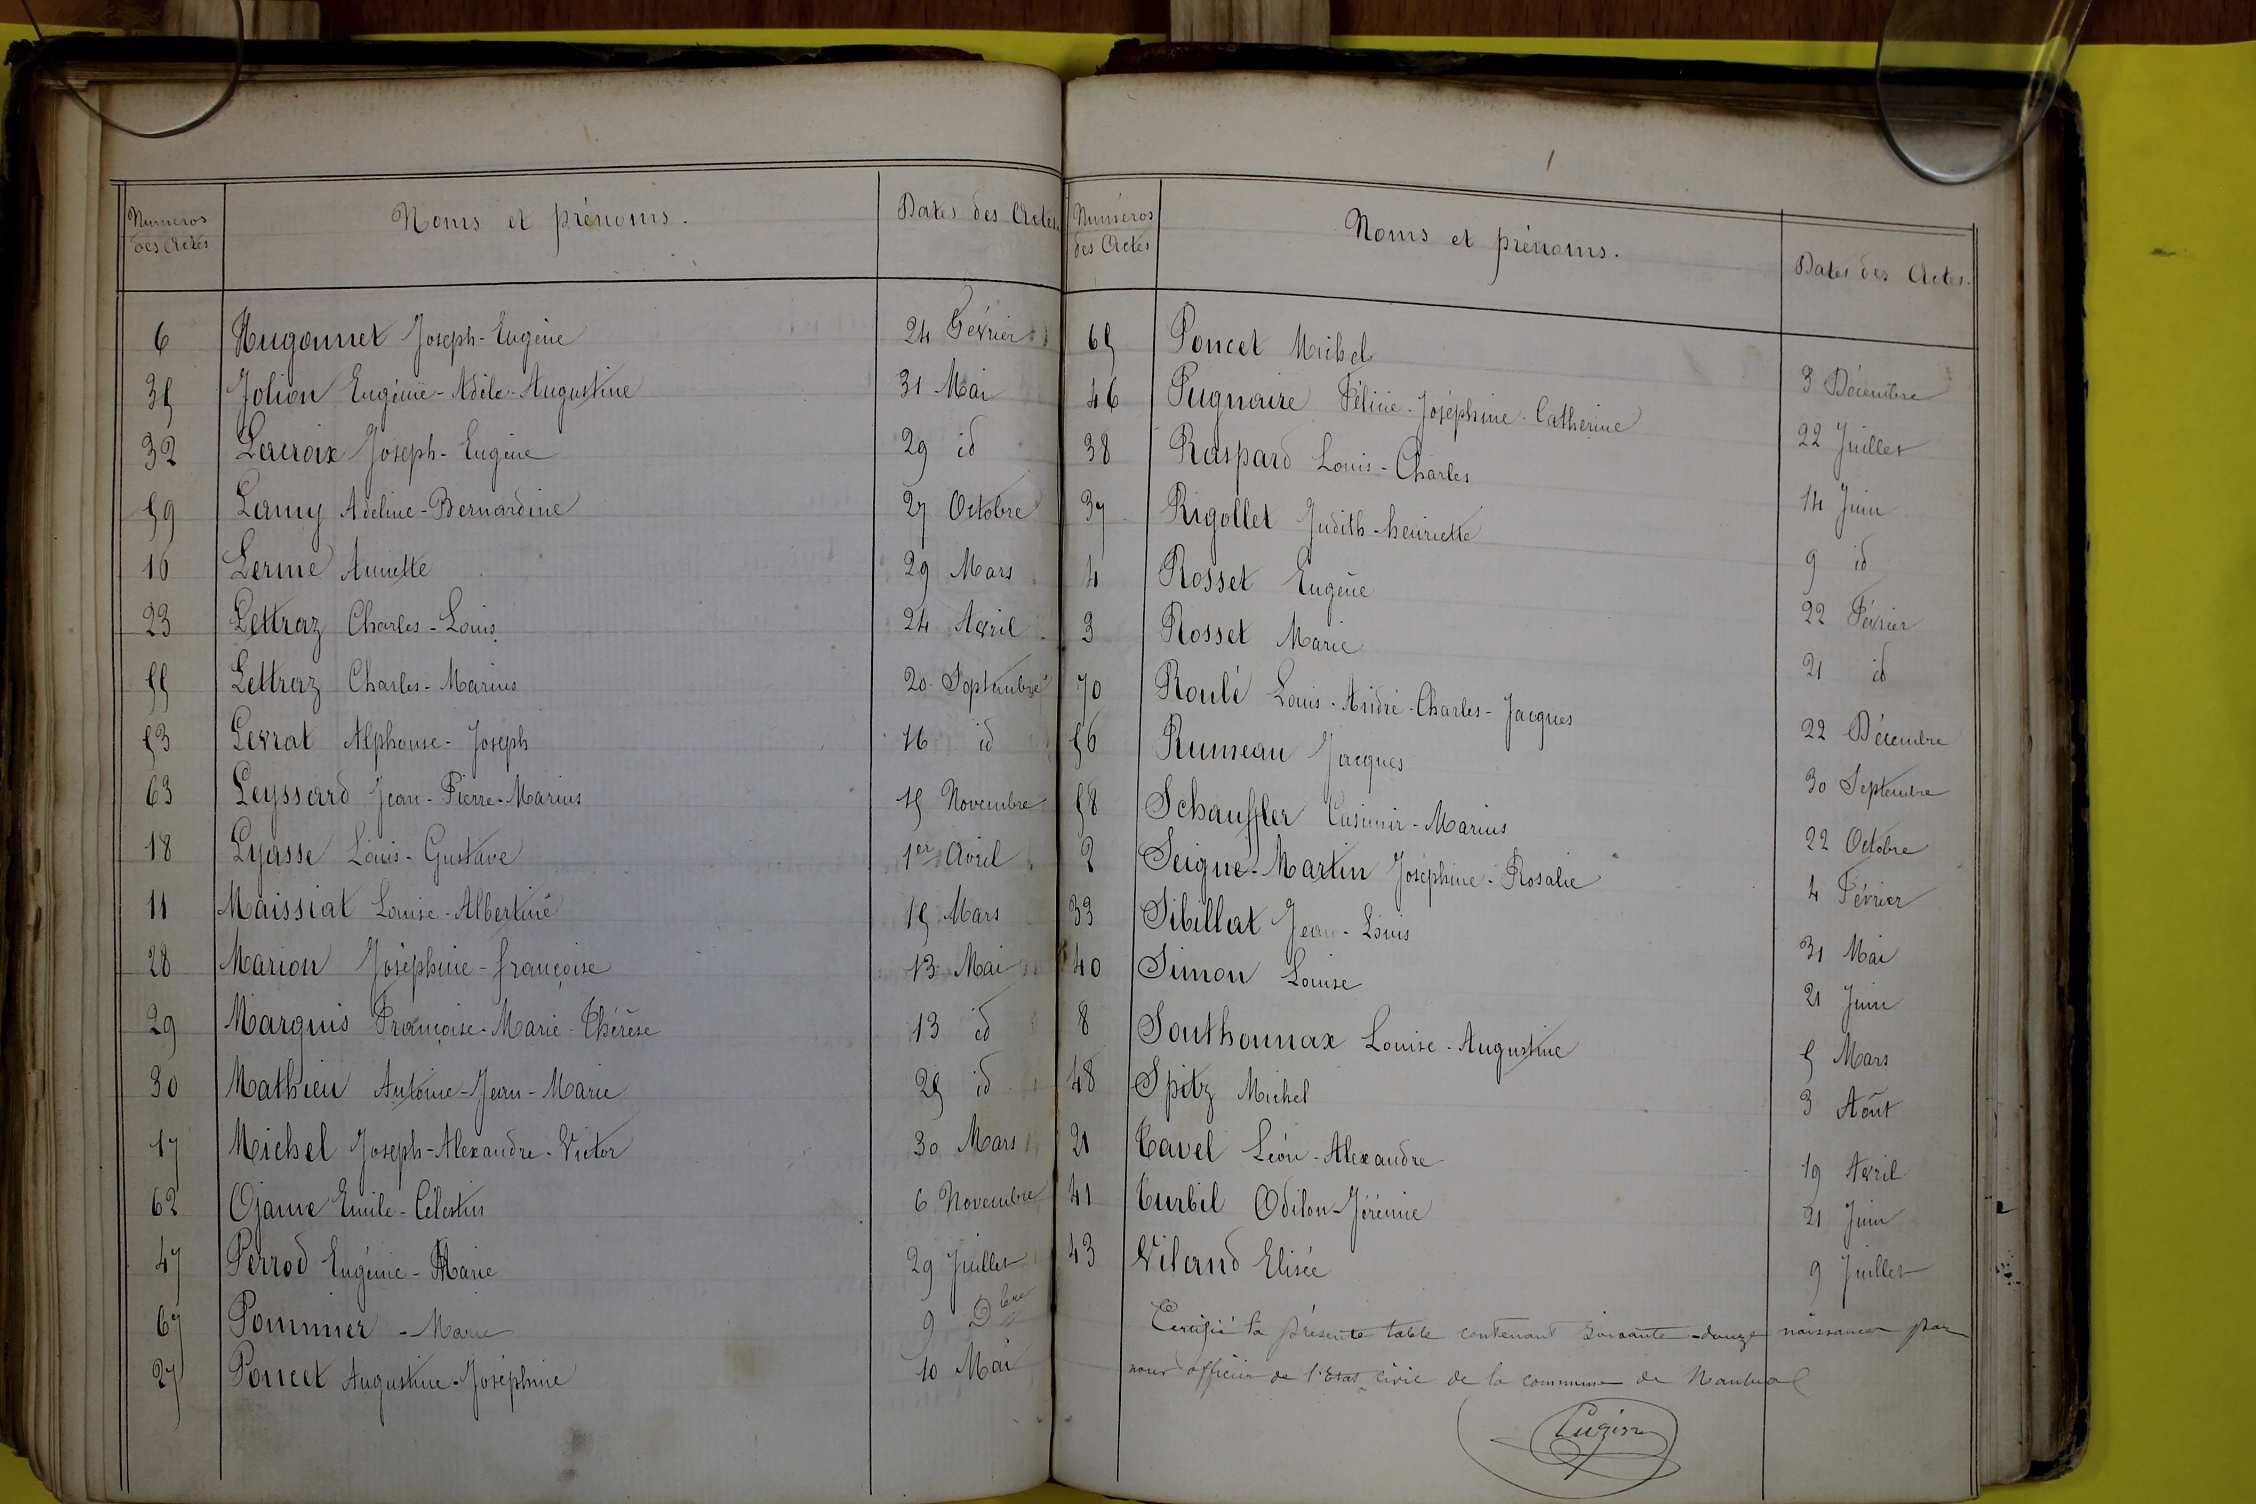 Numéros des Actes Noms et prénoms. Dates des Actes
6 Hugonnet Joseph-Eugène 24 Février
35 Jolion Eugénie-Adèle-Augustine 31 Mai
32 Lacroix Joseph-Eugène 29 id
59 Lamy Adeline-Bernardine 27 Octobre
16 Lerme Annette 29 Mars
23 Lettraz Charles-Louis 24 Avril
55 Lettraz Charles-Marius 20 Septembre
53 Levrat Alphonse-Joseph 16 id
63 Leyssard Jean-Pierre-Marius 15 Novembre
18 Lyasse Louis-Gustave 1er Avril
11 Maissiat Louise-Albertine 15 Mars
28 Marion Joséphine-françoise 13 Mai
29 Marquis Françoise-Marie-Thérèse 13 id
30 Mathieu Antoine-Jean-Marie 25 id
17 Michel Joseph-Alexandre-Victor 30 Mars
62 Ojame Emile-Célestin 6 Novembre
47 Perrod Eugénie-Marie 29 Juillet
67 Pommier -Marie 9 Dbre
27 Poncet Augustine-Joséphine 10 Mai
Numéros des Actes Noms et prénoms. Dates des Actes.
65 Poncet Michel 3 Décembre
46 Pugnaire Félicie-Joséphine-Catherine 22 Juillet
38 Raspard Louis-Charles 14 Juin
37 Rigollet Judith-henriette 9 id
4 Rosset Eugène 22 Février
3 Rosset Marie 21 id
70 Roulé Louis-André-Charles-Jacques 22 Décembre
56 Rumeau Jacques 30 Septembre
58 Schauffler Casimir-Marius 22 Octobre
2 Seigne-Martin Joséphine-Rosalie 4 Février
33 Sibillat Jean-Louis 31 Mai
40 Simon Louise 21 Juin
8 Southonnax Louise-Augustine 5 Mars
48 Spitz Michel 3 Août
21 Tavel Léon-Alexandre 19 Avril
41 Turbil Odilon-Jérémie 21 Juin
43 Viland Elisée 9 Juillet
Certifié la présente table contenant soixante-douze naissances par
nous officier de l'Etat civil de la commune de Nantua